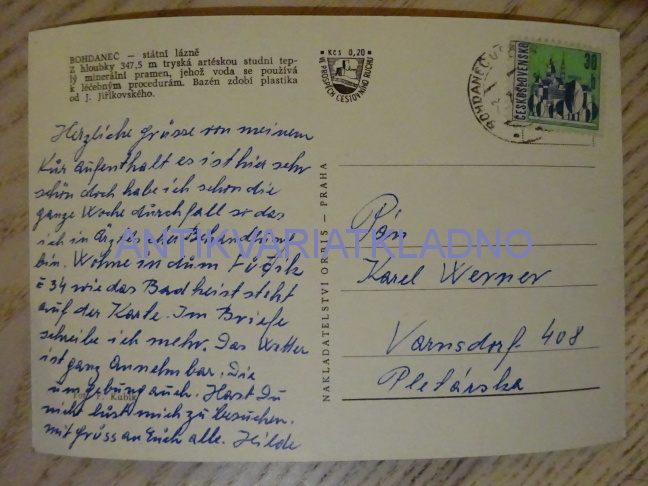 BOHDANEČ — státní lázně
z hloubky 347,5 m tryská artéskou studní tep-
lý minerální pramen, jehož voda se používá
k léčebným procedurám. Bazén zdobí plastika
od J. Jiříkovského.
Kčs 0,20
VE PROSPĚCH CESTOVNÍHO RUCHU
BOHDANEČ U
30
ČESKOSLOVENSKO
Herzliche Grüsse von meinem
Kur aufenthalt es ist hier sehr
schön doch habe ich schon die
ganze Woche durchfall so das
ich in Ärztlicher Behandlung
bin. Wohne in dům Fučik
č 34 wie das Bad heist steht
auf der Karte. Im Briefe
schreibe ich mehr. Das Wetter
ist ganz annehmbar. Die
umgebung auch. Hast Du
nicht lust mich zu besuchen.
mit Grüss an Euch alle. Hilde
Foto F. Kubík
NAKLADATELSTVÍ ORBIS — PRAHA
Pán
Karel Werner
Varnsdorf 408
Pletárska
ANTIKVARIATKLADNO